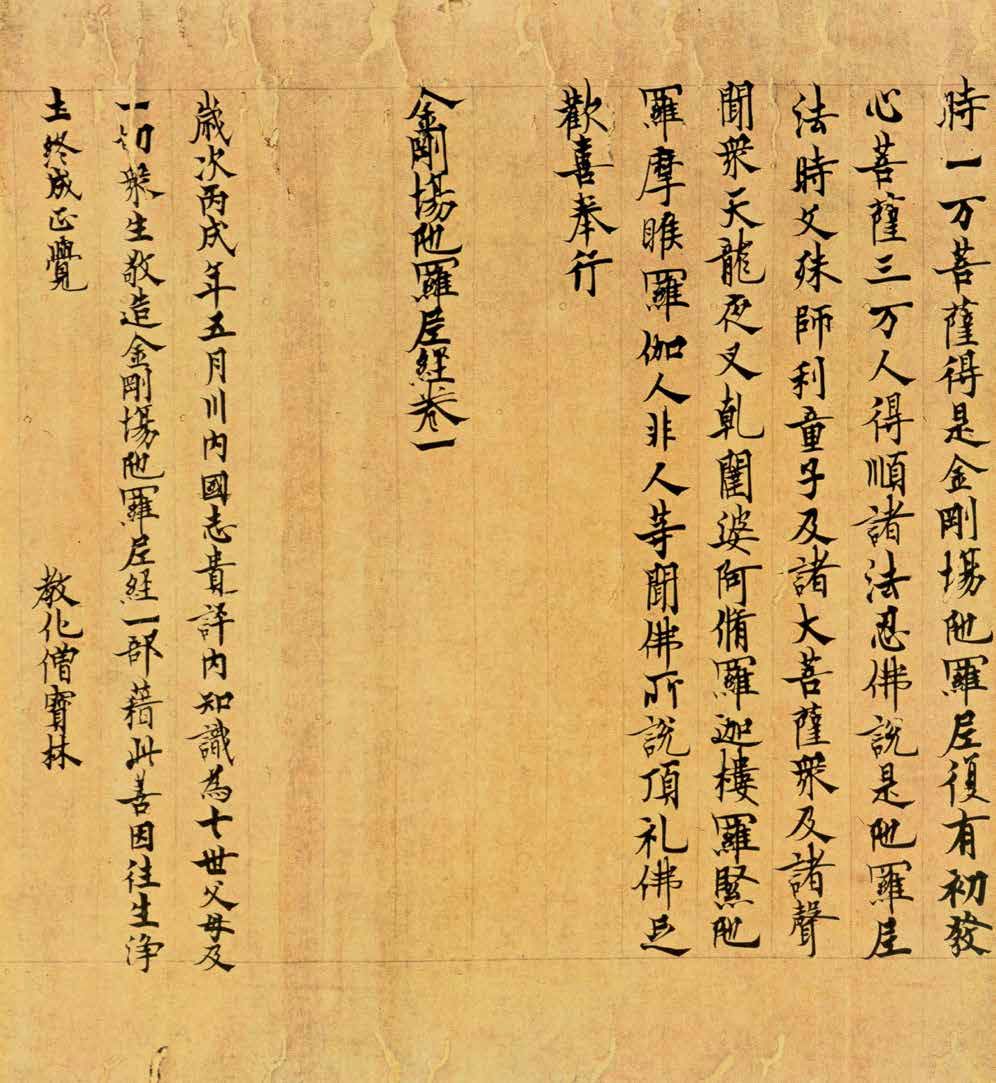 時一万菩薩得是金剛場陁羅尼復有初發
心菩薩三万人得順諸法忍佛說是陁羅尼
法時文殊師利童子及諸大菩薩衆及諸聲
聞衆天龍夜叉乹闥婆阿脩羅迦樓羅緊陁
羅摩睺羅伽人非人等聞佛所說頂礼佛足
歡喜奉行
金剛場陁羅尼経卷一
歳次丙戌年五月川內國志貴評內知識為七世父母及
一切衆生敬造金剛場陁羅尼経一部藉此善因往生浄
土終成正覺
教化僧寶林